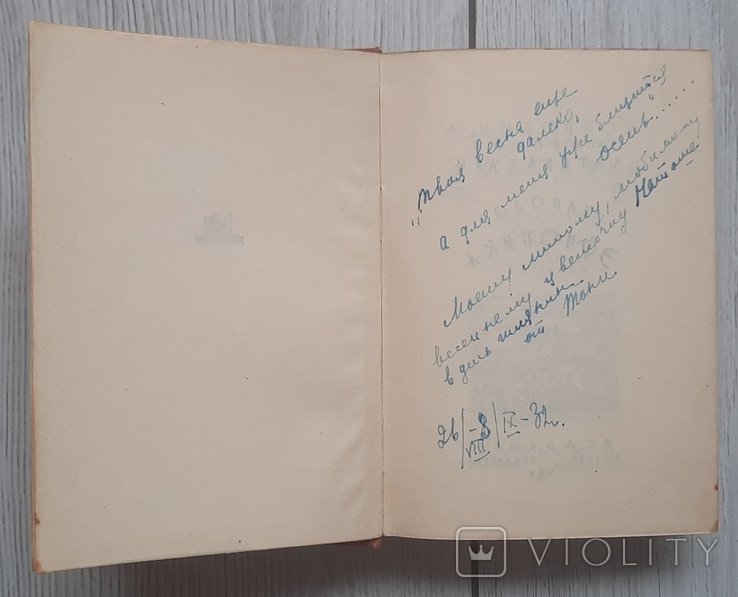 "Твоя весна еще
далеко,
а для меня уже близится
осень".....
Моему милому, любимому
весеннему цветочку Наташе
в день имянин
от Тони
26/VIII - 8/IX - 32 г.
VIOLITY